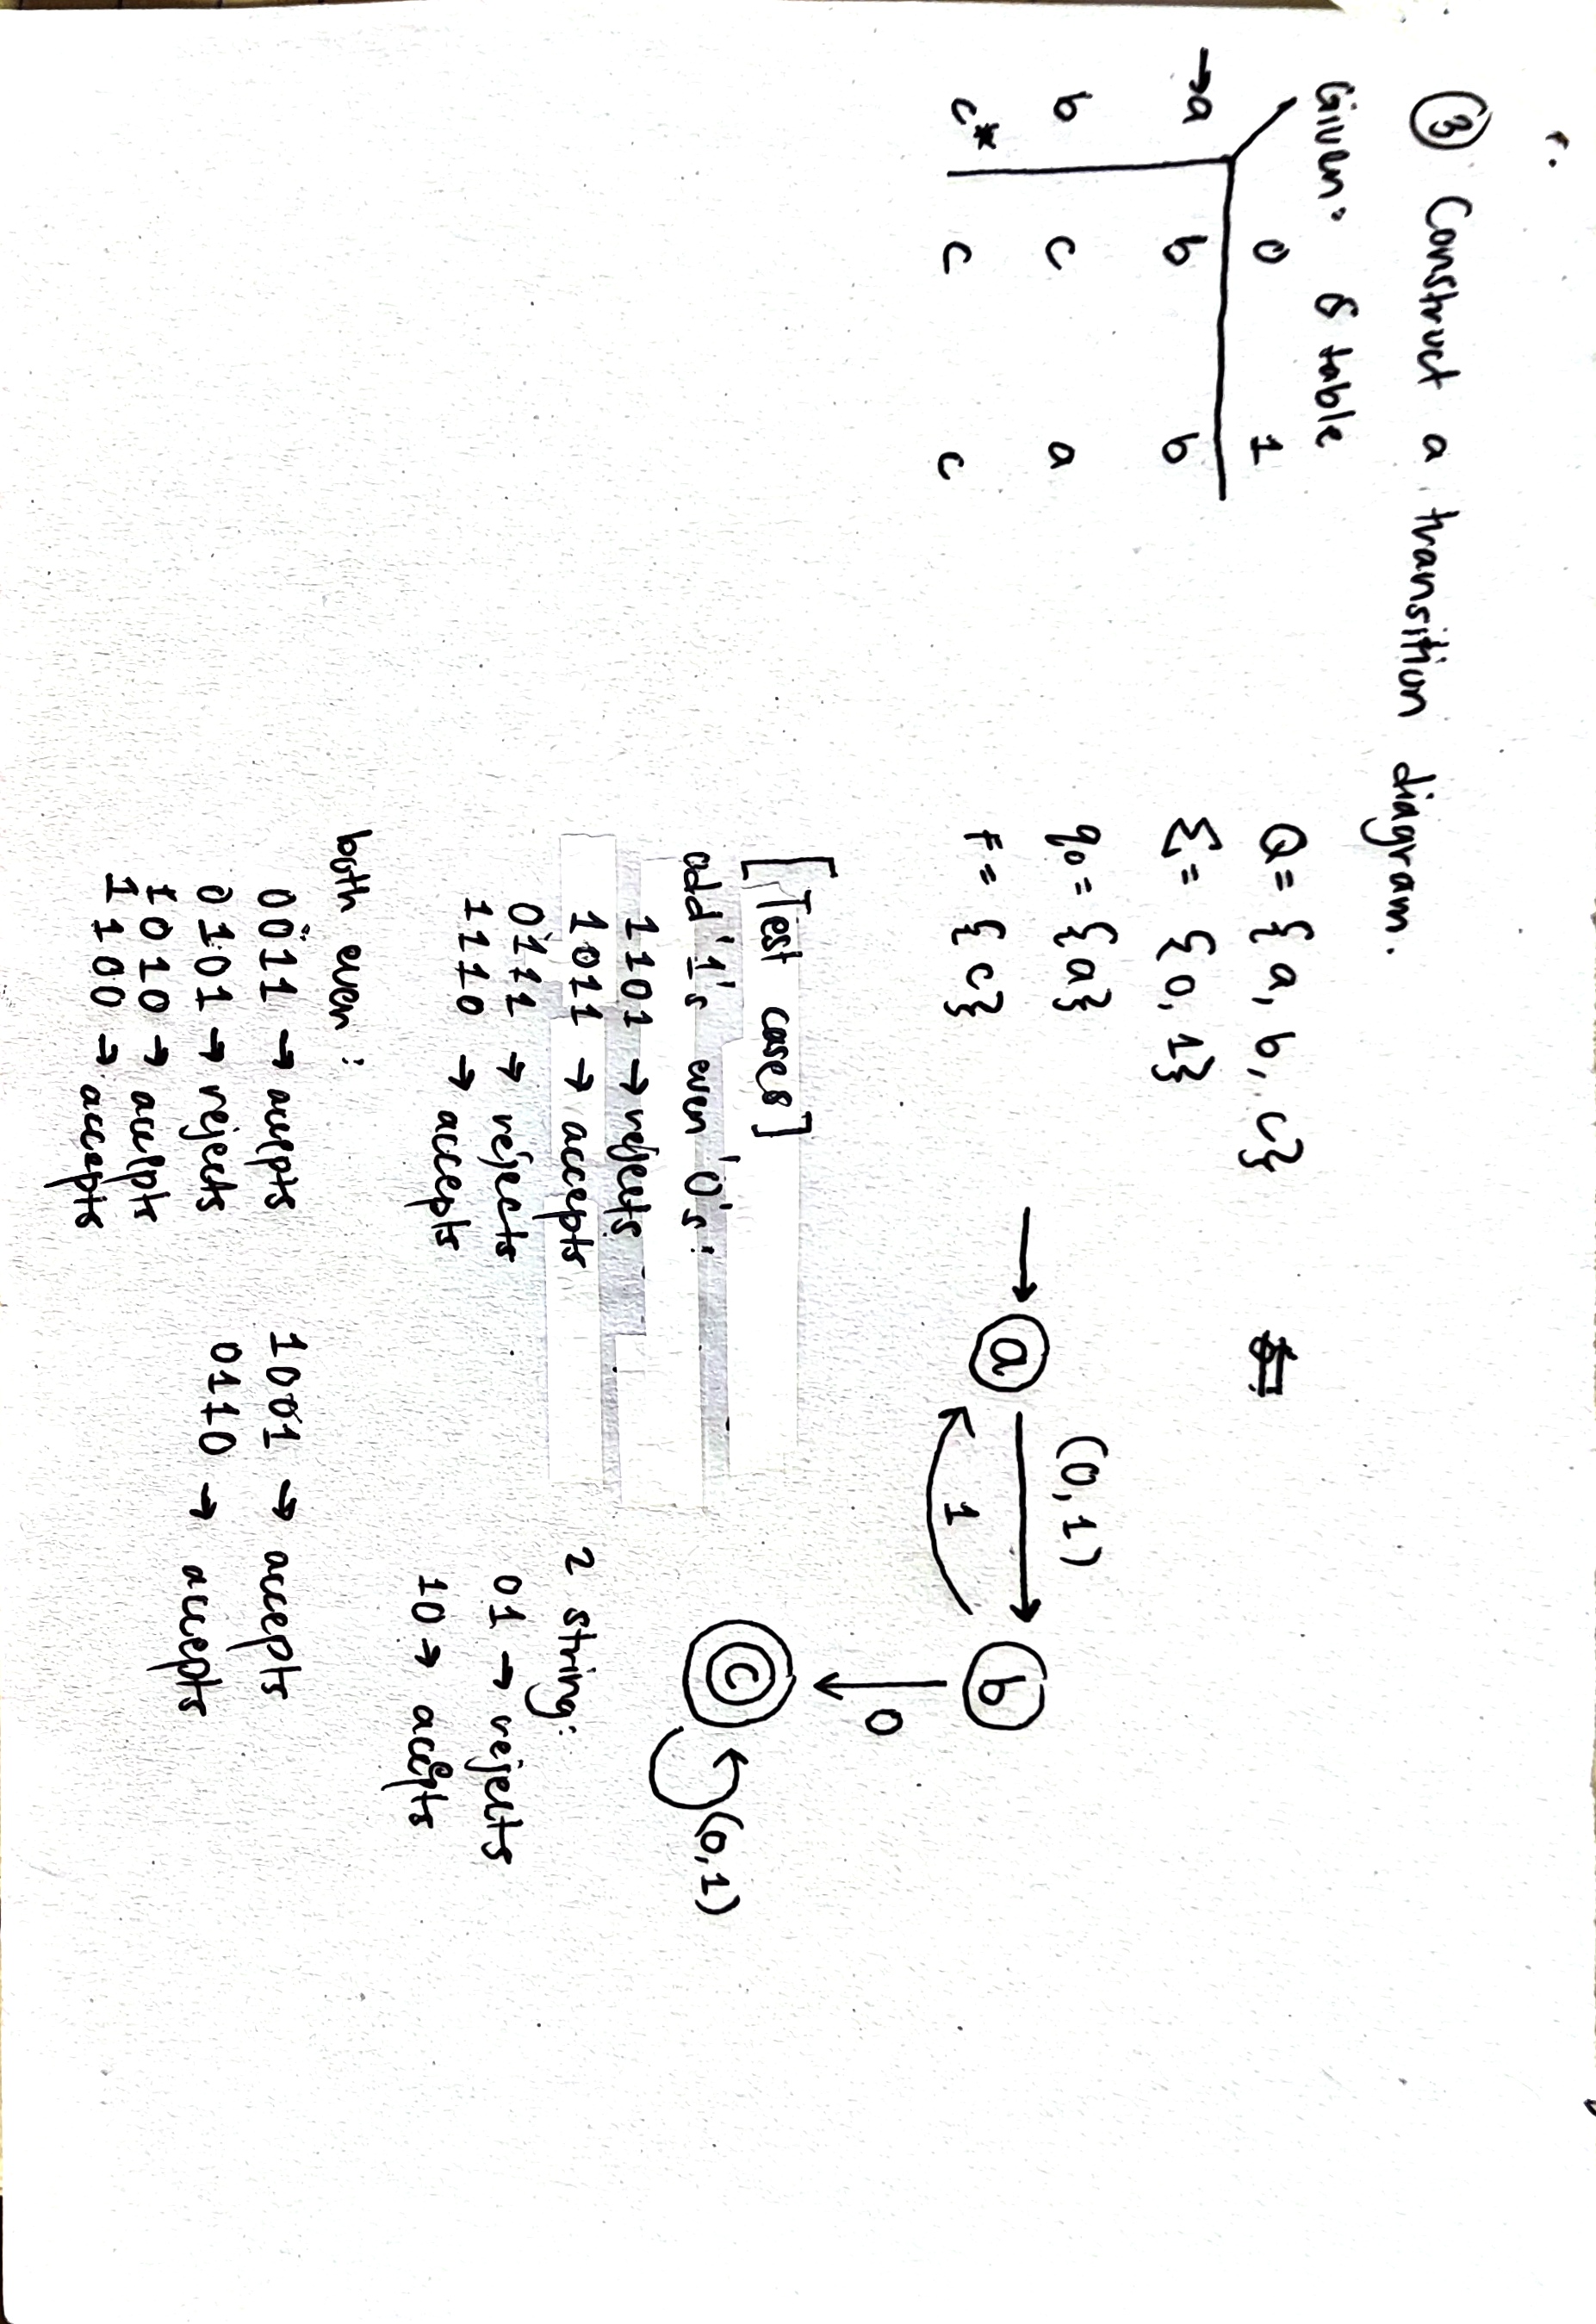 ③ Construct a transition diagram.
Given: δ table
0 1
→a b b
b c a
c* c c
Q = {a, b, c}
Σ = {0, 1}
q₀ = {a}
F = {c}
a
(0,1)
b
1
0
c
(0,1)
[Test cases]
odd '1's even '0's:
1101 → rejects
1011 → accepts
0111 → rejects
1110 → accepts
2 string:
01 → rejects
10 → accepts
both even:
0011 → accepts
0101 → rejects
1010 → accepts
1100 → accepts
1001 → accepts
0110 → accepts